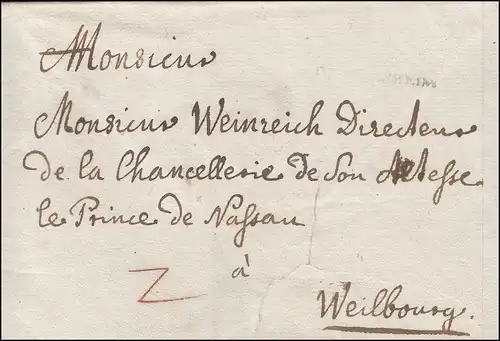 Monsieur
Monsieur Weinreich Directeur
de la Chancellerie de Son Altesse
le Prince de Nassau
à
Weilbourg.